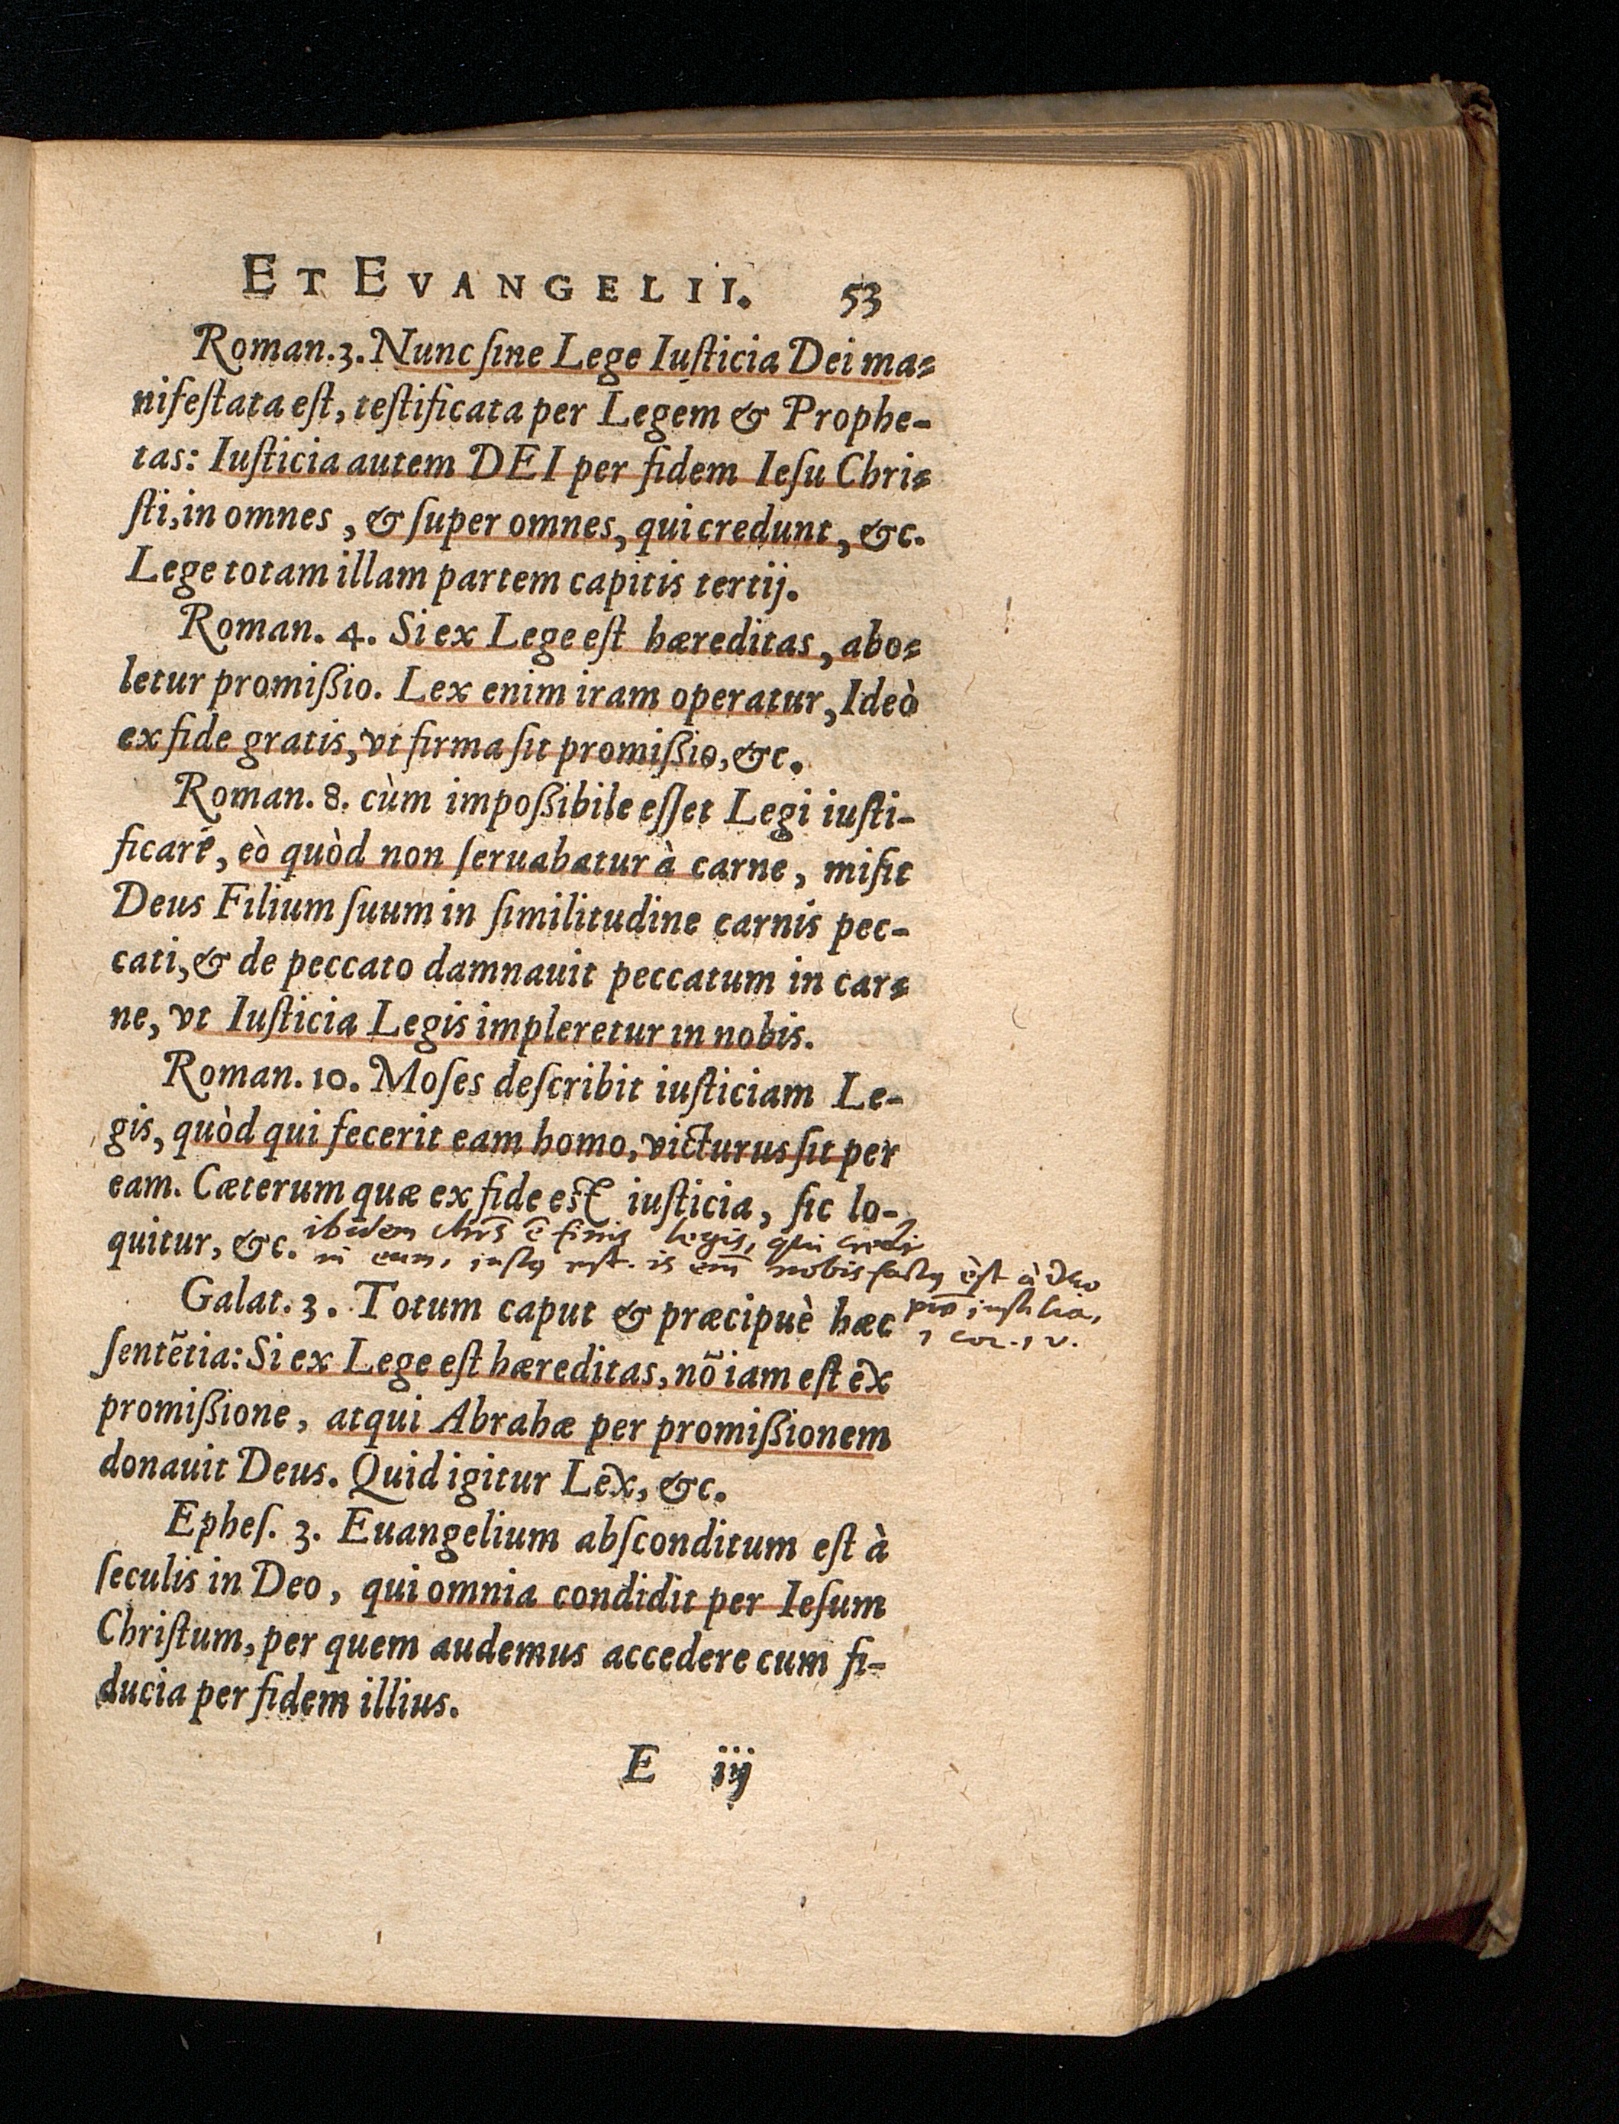 ET EVANGELII. 53
Roman.3. Nunc ſine Lege Iuſticia Dei ma⸗
nifeſtata eſt, teſtificata per Legem & Prophe-
tas: Iuſticia autem DEI per fidem Ieſu Chri⸗
ſti, in omnes, & ſuper omnes, qui credunt, &c.
Lege totam illam partem capitis tertij.
Roman. 4. Si ex Lege eſt hæreditas, abo⸗
letur promißio. Lex enim iram operatur, Ideò
ex fide gratis, vt firma ſit promißio, &c.
Roman. 8. cùm impoßibile eſſet Legi iuſti-
ficare, eò quòd non ſeruabatur à carne, miſit
Deus Filium ſuum in ſimilitudine carnis pec-
cati, & de peccato damnauit peccatum in car⸗
ne, vt Iuſticia Legis impleretur in nobis.
Roman. 10. Moſes deſcribit iuſticiam Le-
gis, quòd qui fecerit eam homo, victurus ſit per
eam. Cæterum quæ ex fide eſt iuſticia, ſic lo-
quitur, &c.
ibidem Chrs̄ ē finis legis, qui credit
in eum, iustus est. is eīm nobis factus est à deo
pro iusticia,
1 cor. 1 v.
Galat. 3. Totum caput & præcipuè hæc
ſentẽtia: Si ex Lege eſt hæreditas, nõ iam eſt ex
promißione, atqui Abrahæ per promißionem
donauit Deus. Quid igitur Lex, &c.
Epheſ. 3. Euangelium abſconditum eſt à
ſeculis in Deo, qui omnia condidit per Ieſum
Chriſtum, per quem audemus accedere cum fi-
ducia per fidem illius.
E iij